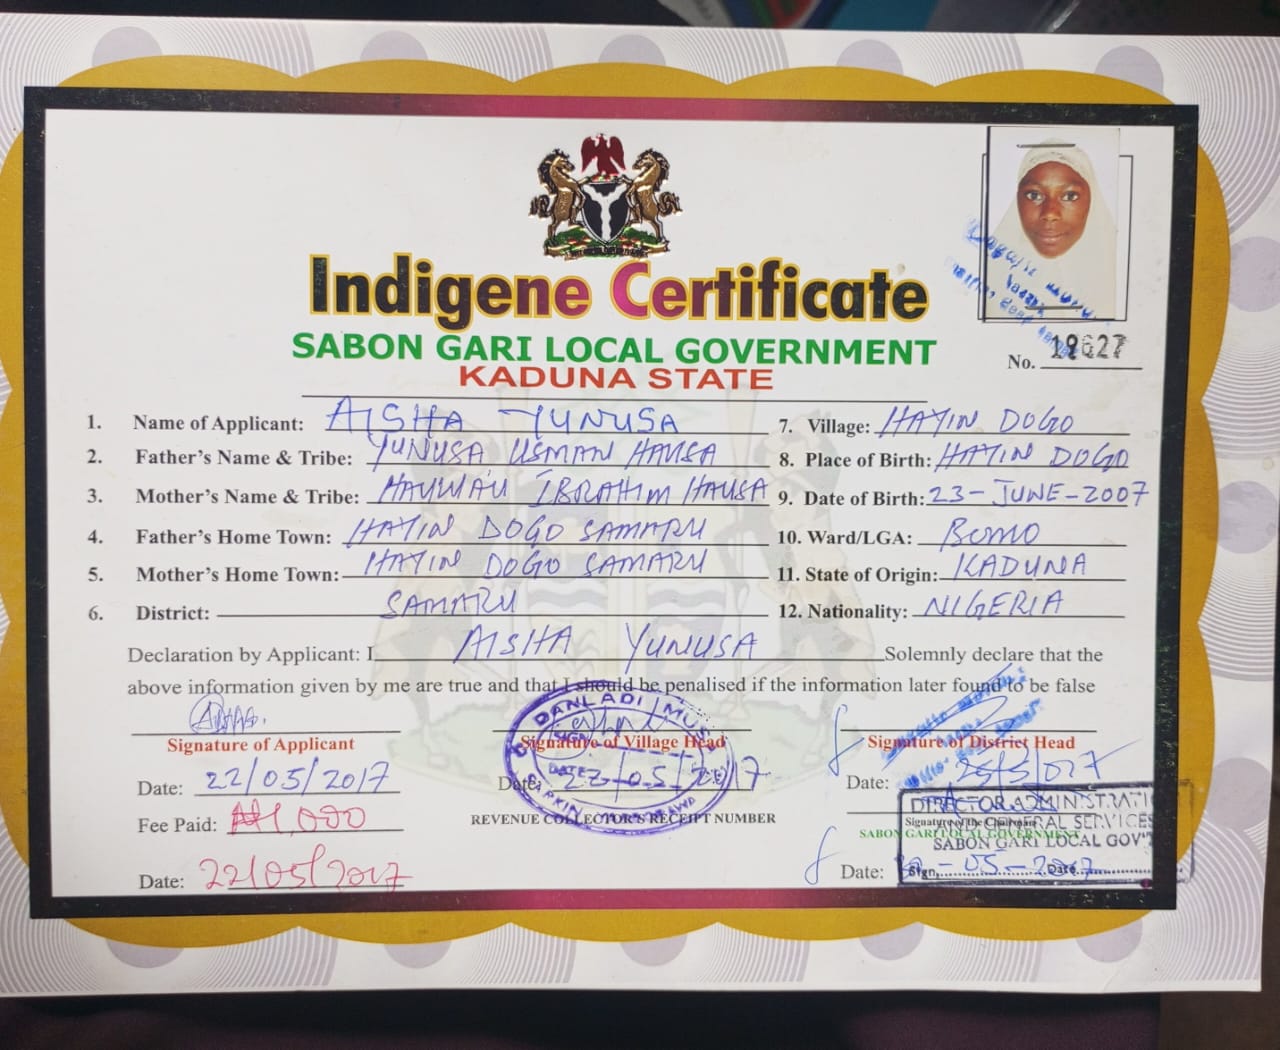 Indigene Certificate
SABON GARI LOCAL GOVERNMENT
KADUNA STATE
No. 18627
1. Name of Applicant: AISHA YUNUSA
2. Father's Name & Tribe: YUNUSA USMAN HAUSA
3. Mother's Name & Tribe: HAUWA'U IBRAHIM HAUSA
4. Father's Home Town: HAYIN DOGO SAMARU
5. Mother's Home Town: HAYIN DOGO SAMARU
6. District: SAMARU
7. Village: HAYIN DOGO
8. Place of Birth: HAYIN DOGO
9. Date of Birth: 23-JUNE-2007
10. Ward/LGA: BOMO
11. State of Origin: KADUNA
12. Nationality: NIGERIA
Declaration by Applicant: I AISHA YUNUSA Solemnly declare that the
above information given by me are true and that I should be penalised if the information later found to be false
Signature of Applicant
Date: 22/05/2017
Fee Paid: ₦1,000
Date: 22/05/2017
DANLADI MUS
SIGN
Signature of Village Head
DATE
Date: 22/05/2017
SARKIN
REVENUE COLLECTOR'S RECEIPT NUMBER
Signature of District Head
Date: 25/5/2017
DIRECTOR ADMINISTRATI
Signature of the Chairman
GENERAL SERVICES
SABON GARI LOCAL GOVERNMENT
SABON GARI LOCAL GOV'T
Date: Sign, -05-2017 Date